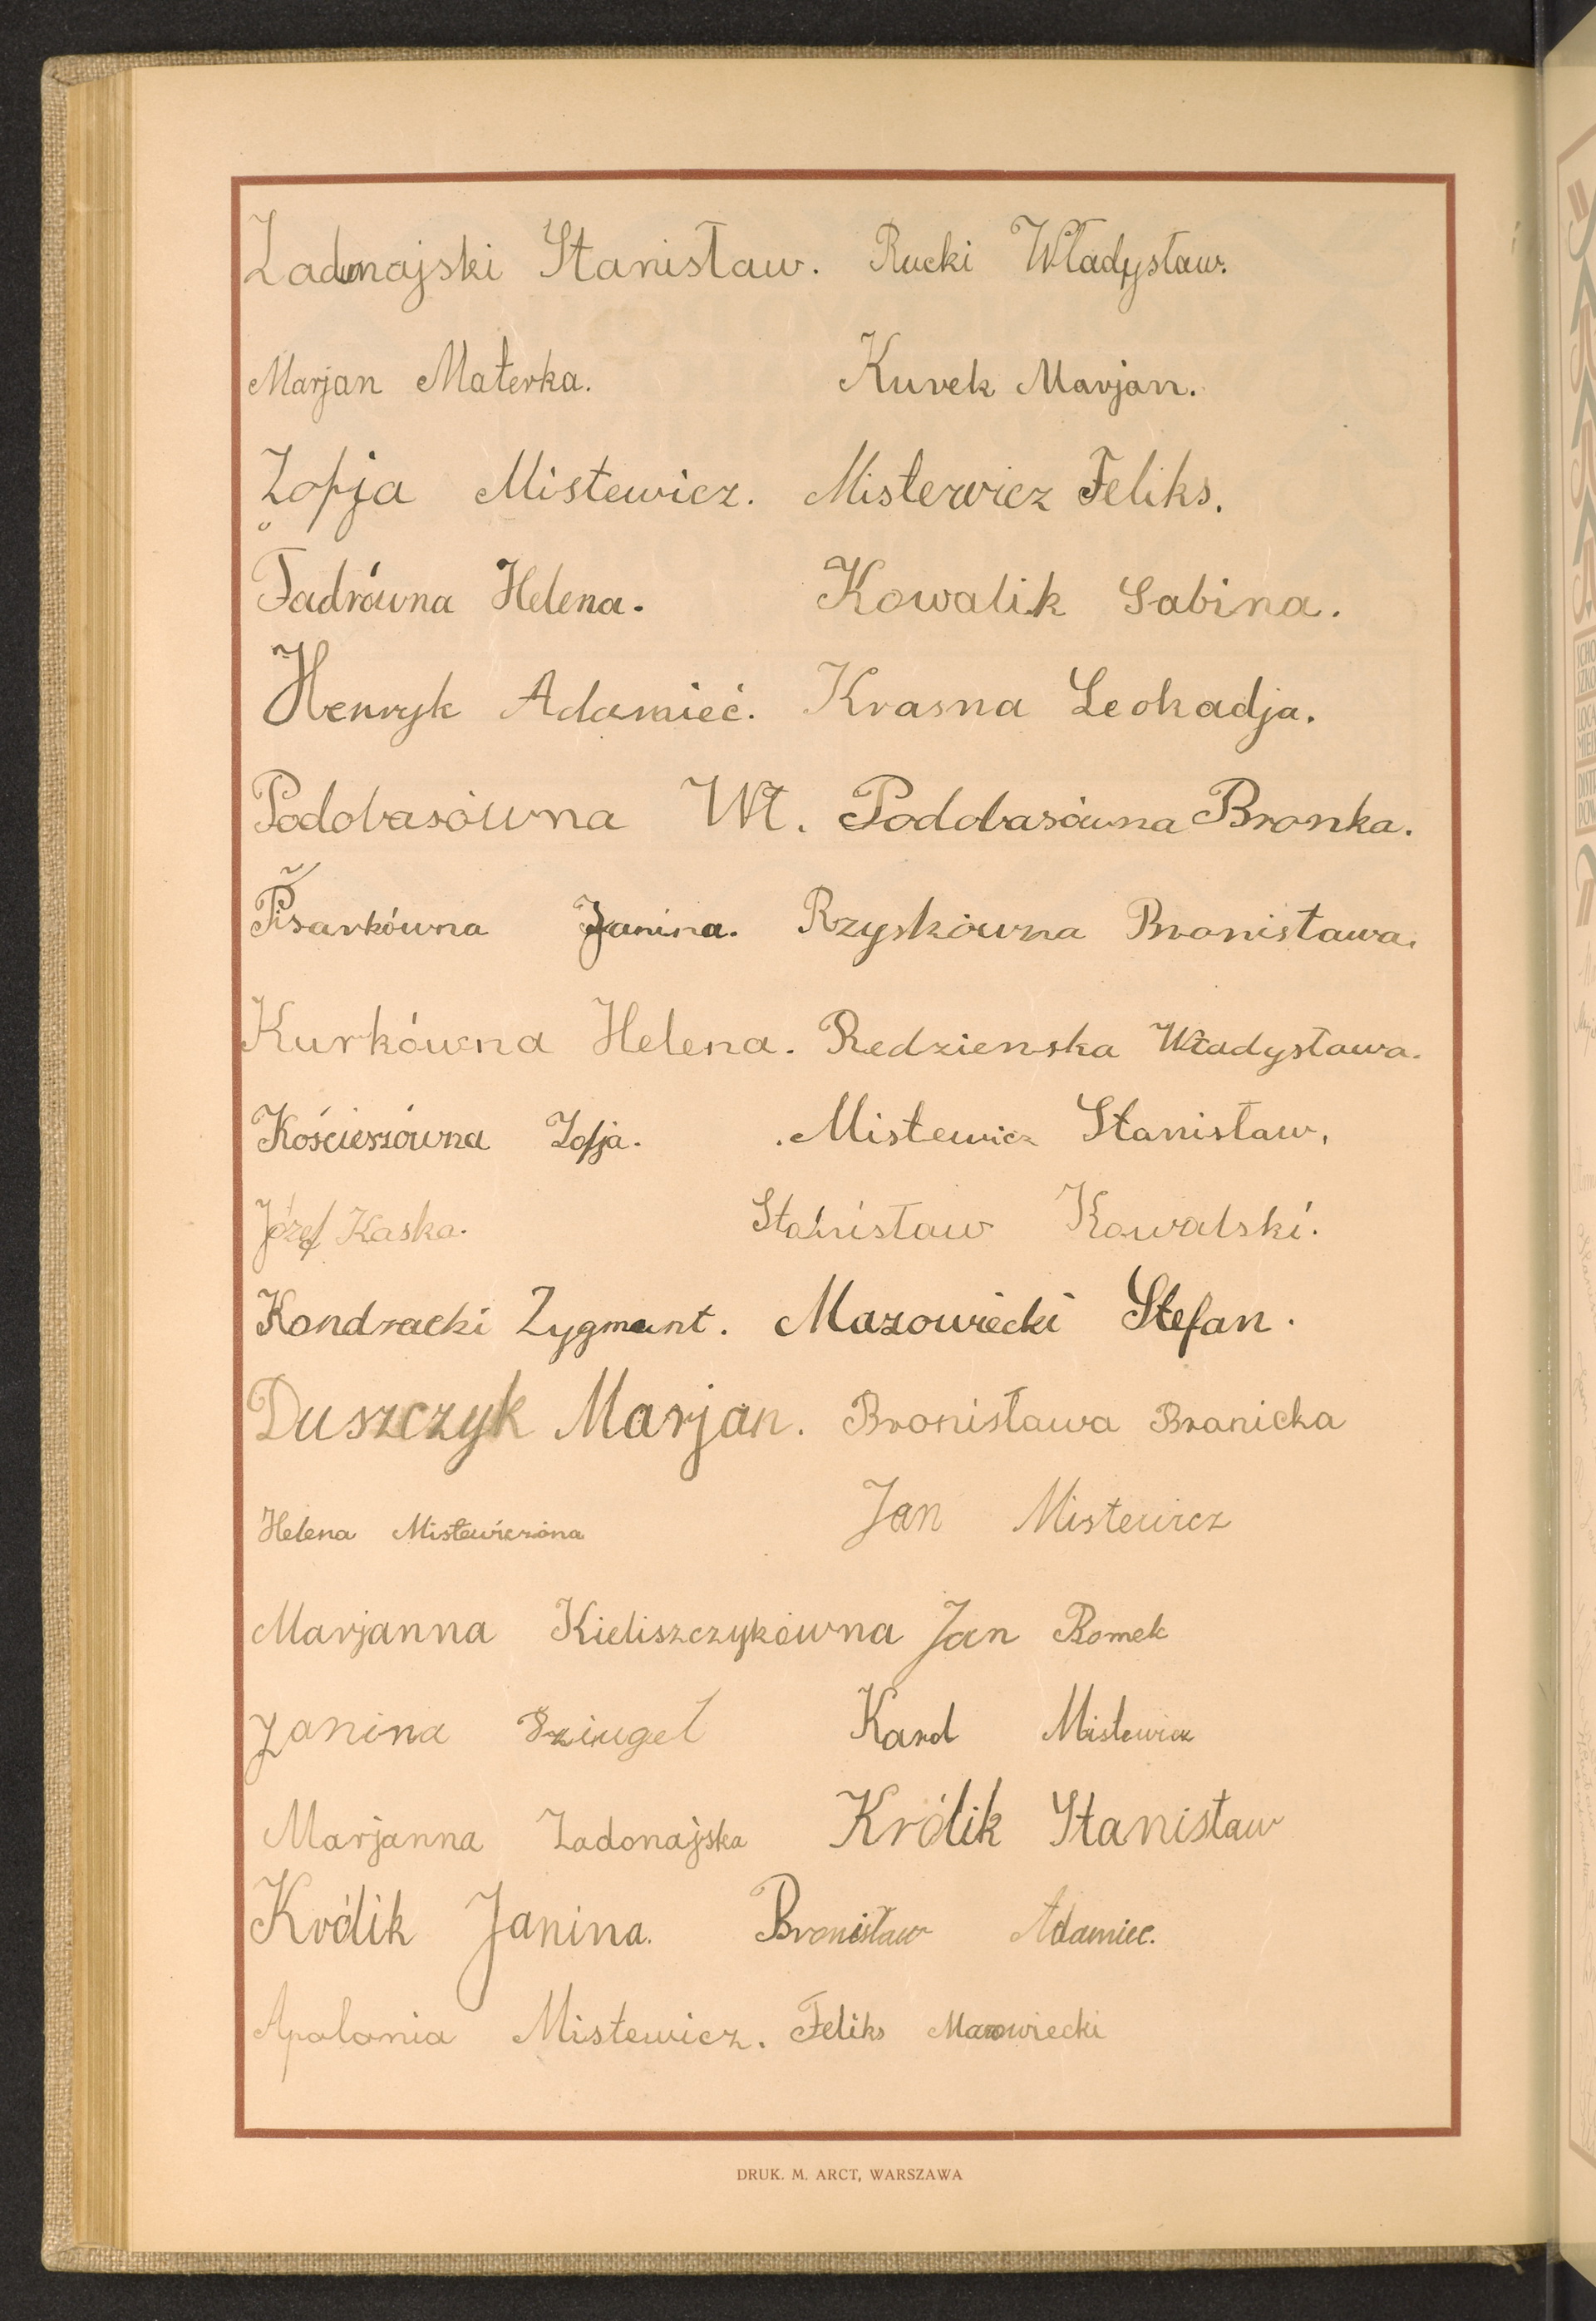 Zadunajski Stanisław. Rucki Władysław.
Marjan Materka. Kurek Marjan.
Zofja Mistewicz. Mistewicz Feliks.
Fadrówna Helena. Kowalik Sabina.
Henryk Adamieć. Krasna Leokadja.
Podobasówna Wł. Podobasówna Bronka.
Pisarkówna Janina. Rzyskówna Bronisława.
Kurkówna Helena. Redzienska Władysława.
Kościeszówna Zofja. Mistewicz Stanisław.
Józef Kaska. Stanisław Kowalski.
Kondracki Zygmunt. Mazowiecki Stefan.
Duszczyk Marjan. Bronisława Branicka
Helena Mistewiczóna Jan Mistewicz
Marjanna Kieliszczykówna Jan Romek
Janina Karol Mistewicz
Marjanna Zadonajska Królik Stanisław
Królik Janina. Bronisław Adamiec.
Apolonia Mistewicz. Feliks Mazowiecki
DRUK. M. ARCT, WARSZAWA